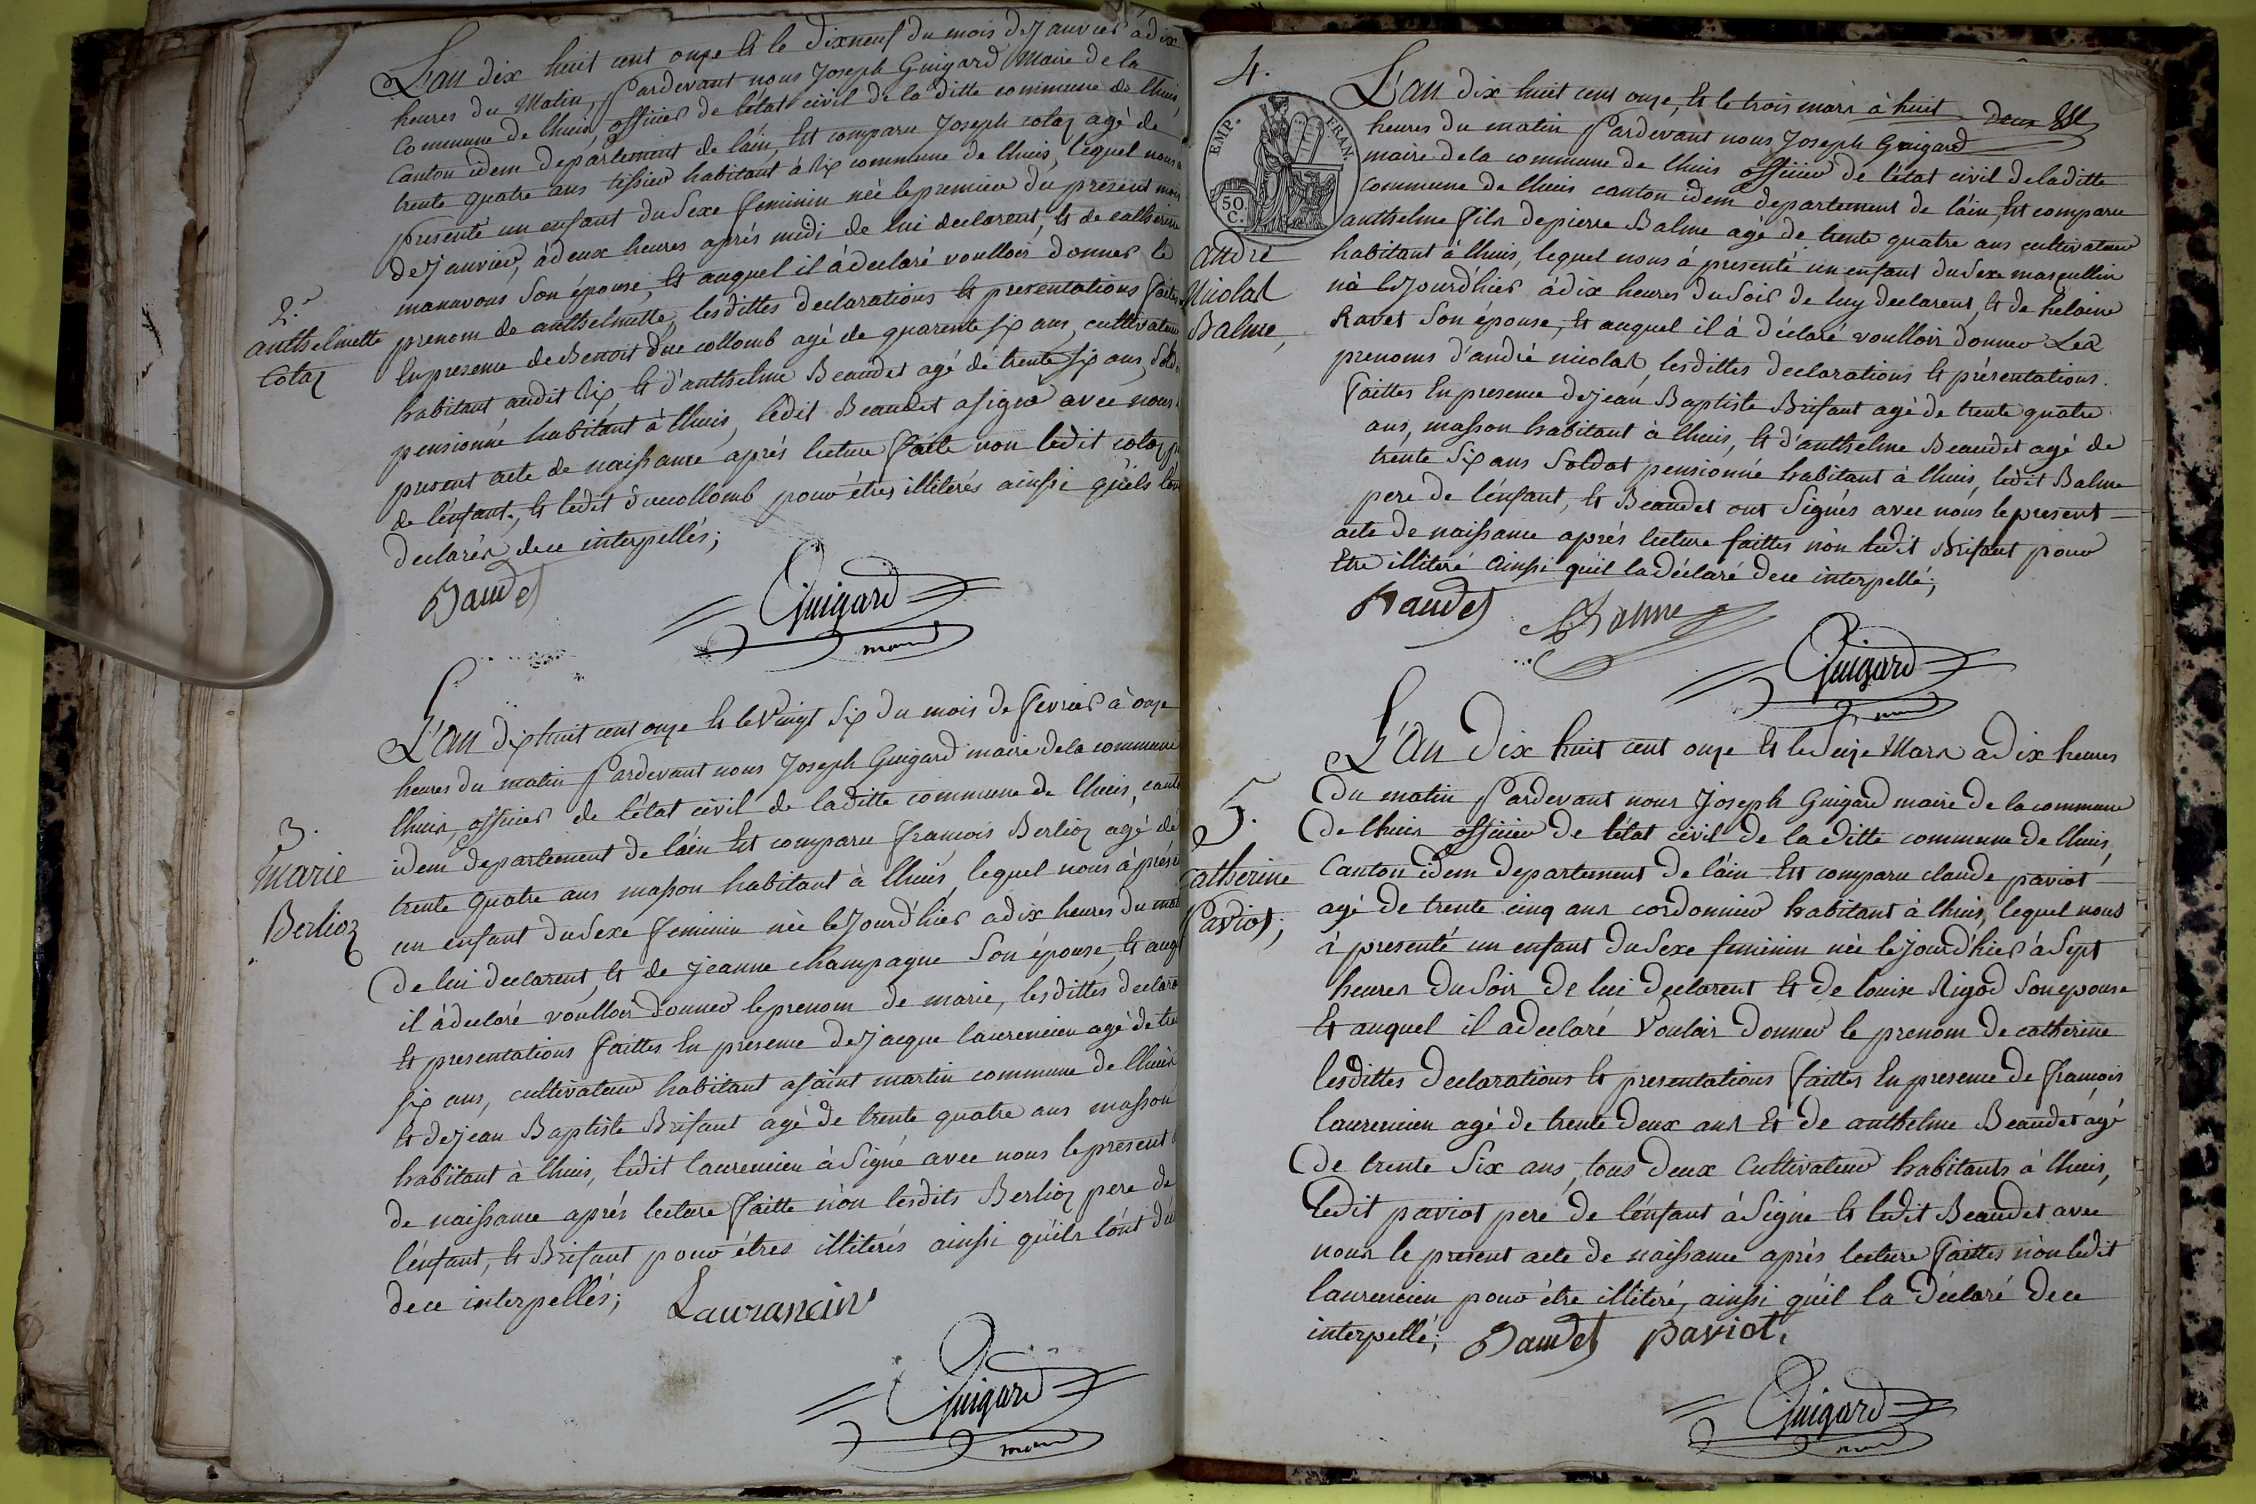 L'an dix huit cent onze Et le dixneuf du mois de Janvier a dix
heures du Matin, Pardevant nous Joseph Guigard Maire de la
Commune de lhuis, officier de l'état civil de la ditte commune de lhuis,
Canton idem departement de láin, Est comparu Joseph cotaz agé de
trente quatre ans tissieur habitant à Rix commune de lhuis, lequel nous a
Presenté un enfant du Sexe feminin née le premier du present mois
de Janvier, à deux heures aprés midi de lui declarent, Et de catherine
manavous Son épouse, Et auquel il à declaré voulloir donner le
2.e
anthelmette
Cotaz
prenom de anthelmette, lesdittes declarations Et presentations faittes
En presence de Benoit Duc collomb agé de quarente six ans, cultivateur
habitant audit Rix, Et d'anthelme Beaudet agé de trente six ans, Soldat
pensionné habitant à lhuis, ledit Beaudet a signé avec nous le
present acte de naissance aprés lecture faite non ledit cotaz pere
de l'enfant, Et ledit Duccollomb pour étres illiterés ainssi qu'ils l'ont
declarés de ce interpellés;
Baudet Guigard
maire
L'an dix huit cent onze Et le vingt Six du mois de fevrier à onze
heures du matin Pardevant nous Joseph Guigard maire de la commune
lhuis, officier de l'état civil de la ditte commune de lhuis, canton
3.
Marie
Berlioz
idem departement de láin Est comparu francois Berlioz agé de
trente quatre ans masson habitant à lhuis, lequel nous à présenté
un enfant du Sexe feminin née le Jourd'hier a dix heures du matin
de lui declarent, Et de jeanne champagne Son épouse, Et auquel
il à declaré voulloir donner le prenom de marie, lesdittes declarations
Et presentations faittes En presence de Jacque laurencien agé de trente
six ans, cultivateur habitant a saint martin commune de lhuis
Et de jean Baptiste Brifaut agé de trente quatre ans masson
habitant à lhuis, ledit laurencien à Signé avec nous le present
de naissance aprés lecture faitte nón lesdits Berlioz pere de
l'enfant, Et Brifaut pour étres illiterés ainssi qu'ils l'ont
de ce interpellés; Laurancin
Guigard
maire
4.
EMP. FRAN.
50 C.
L'an dix huit cent onze, Et le trois mars à huit
heures du matin Pardevant nous Joseph Guigard
maire de la commune de lhuis officier de l'état civil de laditte
commune de lhuis canton idem departement de láin, Est comparu
anthelme fils de pierre Balme agé de trente quatre ans cultivateur
andré
Nicolas
Balme,
habitant à lhuis, lequel nous à presenté un enfant du Sexe masqullin
né le Jourd'hier à dix heures du Soir de luy declarent, Et de helaine
Ravet Son épouse, Et auquel il à déclaré voulloir donner Les
prenoms d'andré nicolas, lesdittes declarations Et présentations.
faittes En presence de jean Baptiste Brifaut agé de trente quatre
ans, masson habitant à lhuis, Et d'anthelme Beaudet agé de
trente Six ans Soldat pensionné habitant à lhuis, ledit Balme
pere de l'enfant, Et Beaudet ont Signés avec nous le present
acte de naissance aprés lecture faittes nón ledit Brifaut pour
Etre illiteré ainssi qu'il la déclaré de ce interpellé;
Baudet Balme
Guigard
maire
L'an Dix huit cent onze Et le seize Mars a dix heures
5.
Catherine
Paviot;
Du matin Pardevant nous Joseph Guigard maire de la commune
de lhuis officier de l'état civil de la ditte commune de lhuis,
Canton idem departement de láin Est comparu claude paviot
agé de trente cinq ans cordonnier habitant à lhuis, lequel nous
à presenté un enfant du Sexe feminin née le jourd'hier à Sept
heures du Soir de lui declarent Et de louise Rigod son epouse
Et auquel il a declaré Vouloir donner le prenom de catherine
lesdittes declarations Et presentations faittes En presence de francois
laurencien agé de trente deux ans Et de anthelme Beaudet ágé
de trente Six ans, tous deux Cultivateur habitants à lhuis,
ledit paviot pere de l'enfant à Signé Et ledit Beaudet avec
nous le present acte de naissance aprés lecture faittes nón ledit
laurencien pour étre illiteré, ainssi qu'il la déclaré de ce
interpellé; Baudet Paviot,
Guigard
maire